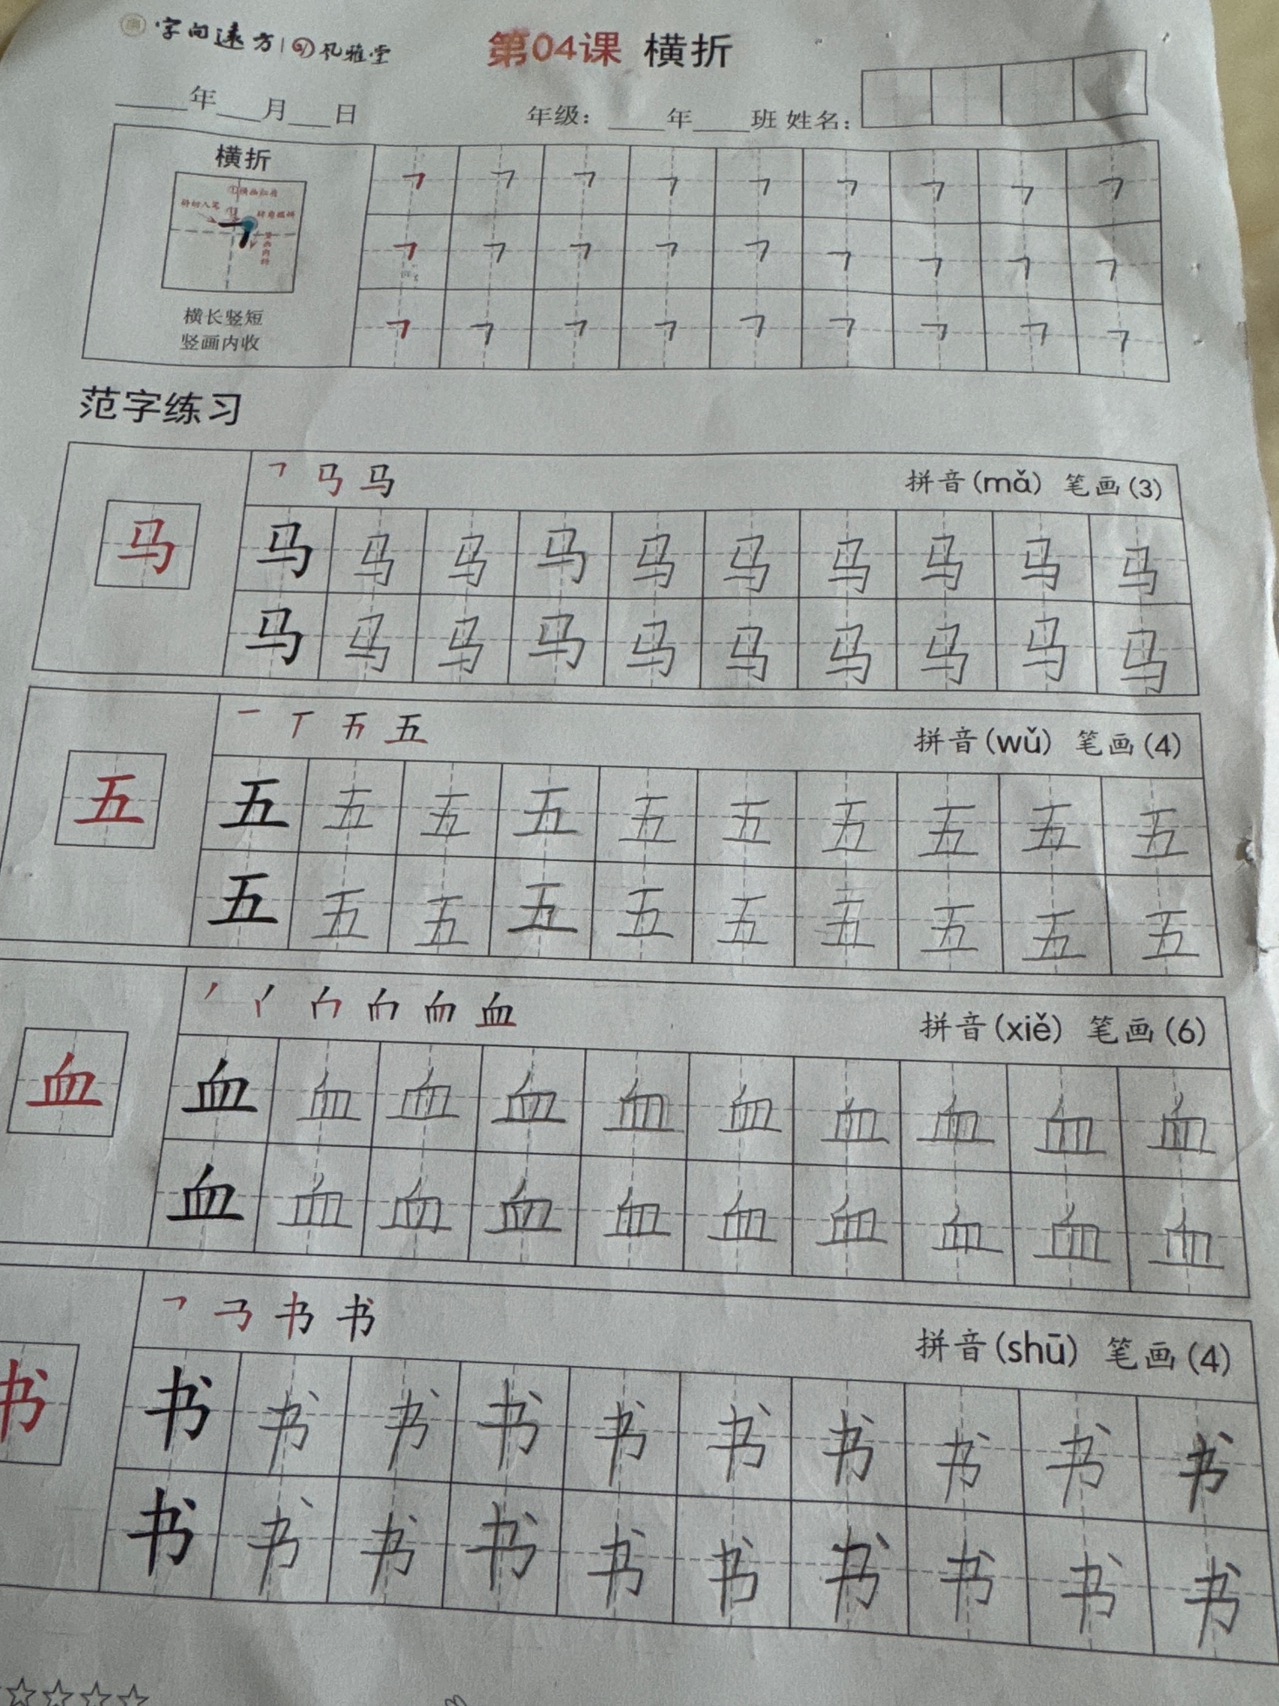 字向远方 风雅堂
第04课 横折
年 月 日 年级: 年 班 姓名:
横折
横长竖短
竖画内收
范字练习
马 马 拼音(mǎ) 笔画(3)
马
马 马 马 马 马 马 马 马 马 马
马 马 马 马 马 马 马 马 马 马
一 丅 五 拼音(wǔ) 笔画(4)
五
五 五 五 五 五 五 五 五 五 五
五 五 五 五 五 五 五 五 五 五
血 拼音(xiě) 笔画(6)
血
血 血 血 血 血 血 血 血 血 血
血 血 血 血 血 血 血 血 血 血
书 拼音(shū) 笔画(4)
书
书 书 书 书 书 书 书 书 书 书
书 书 书 书 书 书 书 书 书 书